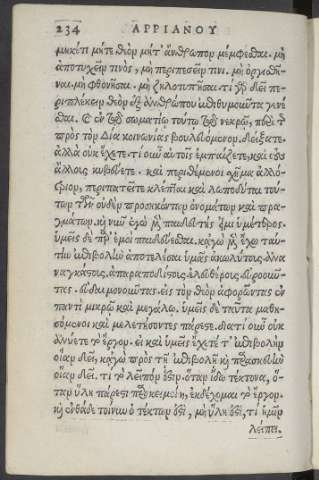 234 ΑΡΡΙΑΝΟΥ
μηκέτι μήτε θεὸν μήτ' ἄνθρωπον μέμφεσθαι. μὴ
ἀποτυχεῖν τινὸς, μὴ περιπεσεῖν τινι. μὴ ὀργισθῆ-
ναι. μὴ φθονῆσαι. μὴ ζηλοτυπῆσαι. τί γδ δεῖ πε-
ριπλέκειν θεὸν ἐξ ἀνθρώπου ἐπιθυμοῦντα γενέ
σθαι. καὶ ἐν τῷ σωματίῳ τούτῳ τῷ νεκρῷ, περὶ τ̃
πρὸς τὸν Δία κοινωνίας βουλευόμενον. δείξατε.
ἀλλὰ οὐκ ἔχετε. τί οὖν αὑτοῖς ἐμπαίζετε, καὶ τοὺς
ἄλλους κυβεύετε. καὶ περιθέμενοι χῆμα ἀλλό-
τριον, περιπατεῖτε κλέπται καὶ λωποδύται τού-
των τῶν οὐδὲν προσηκόντων ὀνομάτων καὶ πρα-
γμάτων. καὶ νῦν ἐγὼ μὲν παιδευτής εἰμι ὑμέτερος.
ὑμεῖς δὲ παρ' ἐμοὶ παιδεύεσθαι. κἀγὼ μὲν ἔχω ταύ-
την ἐπιβολὴν ἀποτελέσαι ὑμᾶς ἀκωλύτους. ἀνα
ναγκάστους. ἀπαραποδίστους. ἐλευθέρους. εὐροοῦν-
τας. εὐδαιμονοῦντας. εἰς τὸν θεὸν ἀφορῶντας ἐν
παντὶ μικρῷ καὶ μεγάλῳ. ὑμεῖς δὲ ταῦτα μαθη-
σόμενοι καὶ μελετήσοντες πάρεστε. διατί οὖν οὐκ
ἀνύετε τὸ ἔργον. εἰ καὶ ὑμεῖς ἔχετέ τ' ἐπιβολὴν
οἵαν δεῖ, κἀγὼ πρὸς τῇ ἐπιβολῇ καὶ παρασκευὴν
οἵαν δεῖ. τί τὸ λεῖπόν ἐστιν. ὅταν ἴδω τέκτονα, ὅ-
ταν ὕλη πάρεστι παρακειμένη, ἐκδέχομαι τὸ ἔργον.
καὶ ἐνθάδε τοίνυν ὁ τέκτων ἐστὶ, ἡ ὕλη ἐστὶ, τί ἡμῖν
λείπει.